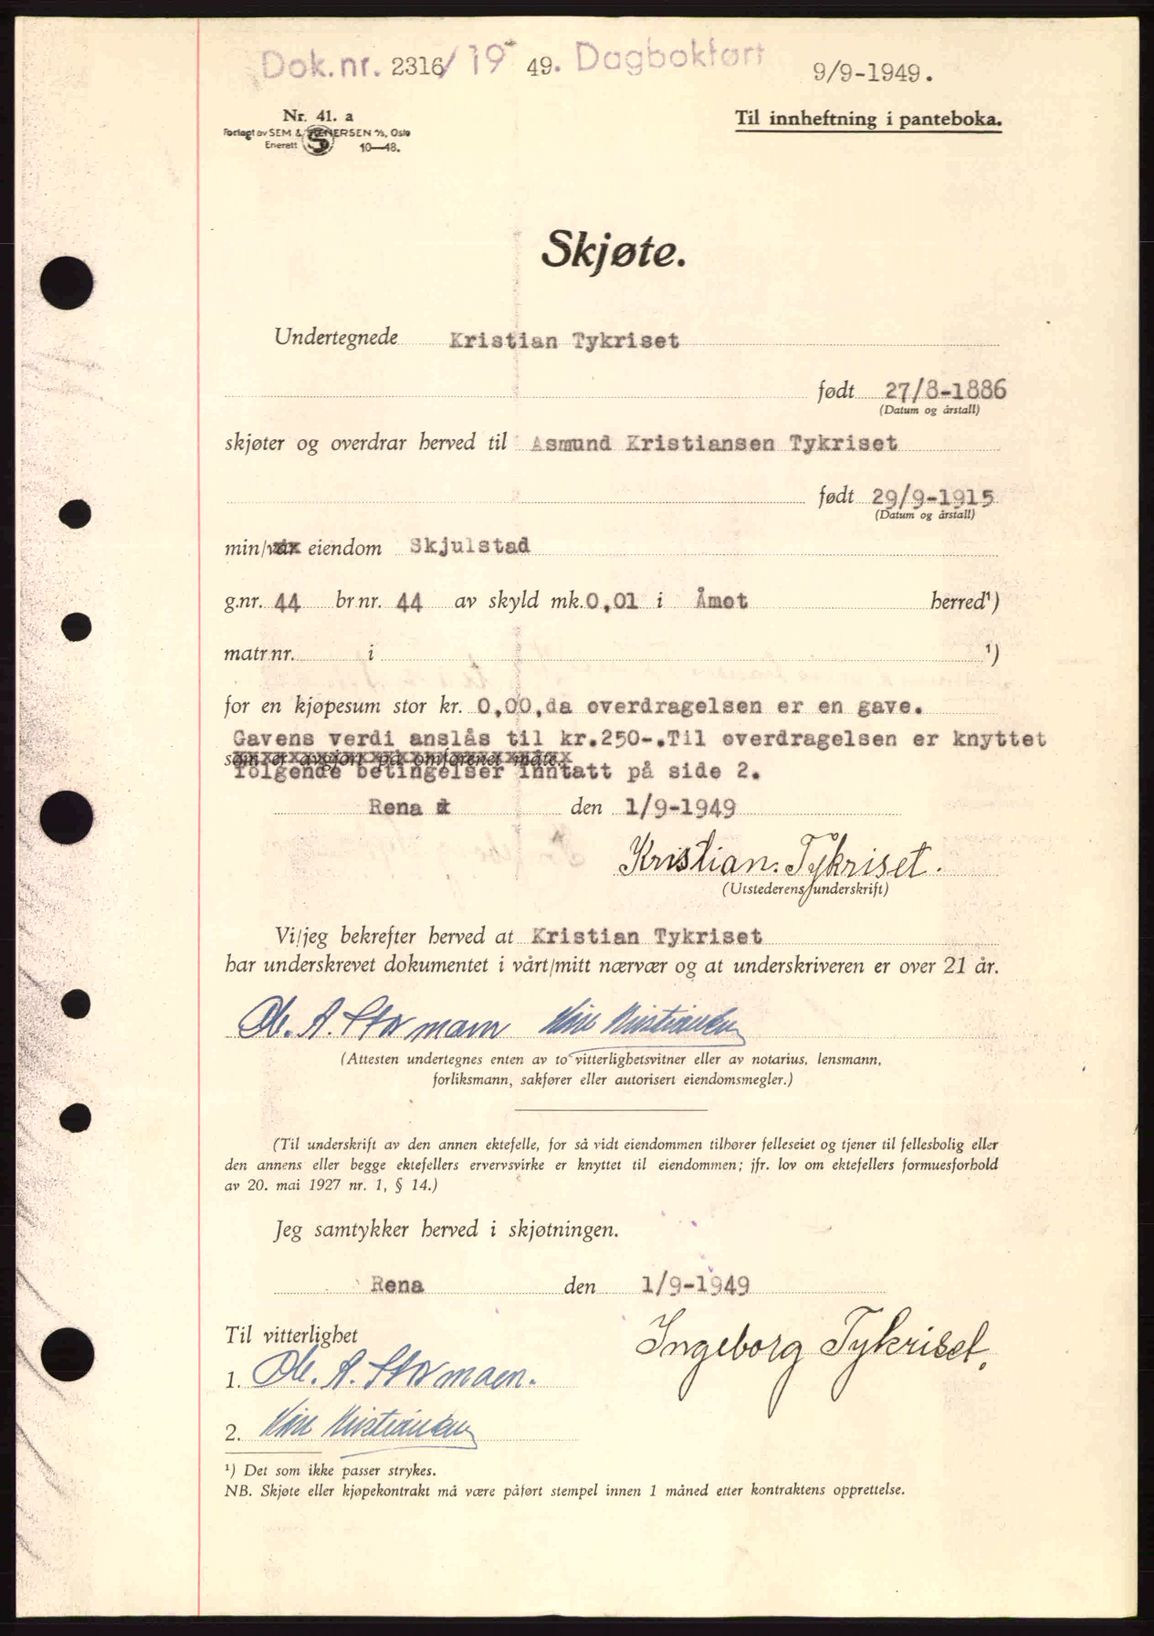 Dok.nr. 2316/19 49. Dagbokført 9/9-1949.
Nr. 41. a
Til innheftning i panteboka.
Forlagt av SEM & STENERSEN A/S, Oslo
Enerett 10—48.
Skjøte.
Undertegnede Kristian Tykriset
født 27/8-1886
(Datum og årstall)
skjøter og overdrar herved til Asmund Kristiansen Tykriset
født 29/9-1915
(Datum og årstall)
min/vår eiendom Skjulstad
g.nr. 44 br.nr. 44 av skyld mk. 0,01 i Åmot herred¹)
matr.nr. i ¹)
for en kjøpesum stor kr. 0,00, da overdragelsen er en gave.
Gavens verdi anslås til kr.250-. Til overdragelsen er knyttet
som er avgjort på omforenet måte.
følgende betingelser inntatt på side 2.
Rena den 1/9-1949
Kristian. Tykriset.
(Utstederens underskrift)
Vi/jeg bekrefter herved at Kristian Tykriset
har underskrevet dokumentet i vårt/mitt nærvær og at underskriveren er over 21 år.
A. Stormoen Kristiansen
(Attesten undertegnes enten av to vitterlighetsvitner eller av notarius, lensmann,
forliksmann, sakfører eller autorisert eiendomsmegler.)
(Til underskrift av den annen ektefelle, for så vidt eiendommen tilhører felleseiet og tjener til fellesbolig eller
den annens eller begge ektefellers ervervsvirke er knyttet til eiendommen; jfr. lov om ektefellers formuesforhold
av 20. mai 1927 nr. 1, § 14.)
Jeg samtykker herved i skjøtningen.
Rena den 1/9-1949
Til vitterlighet
Ingeborg Tykriset.
1. A. Stormoen.
2. Kristiansen
¹) Det som ikke passer strykes.
NB. Skjøte eller kjøpekontrakt må være påført stempel innen 1 måned etter kontraktens opprettelse.